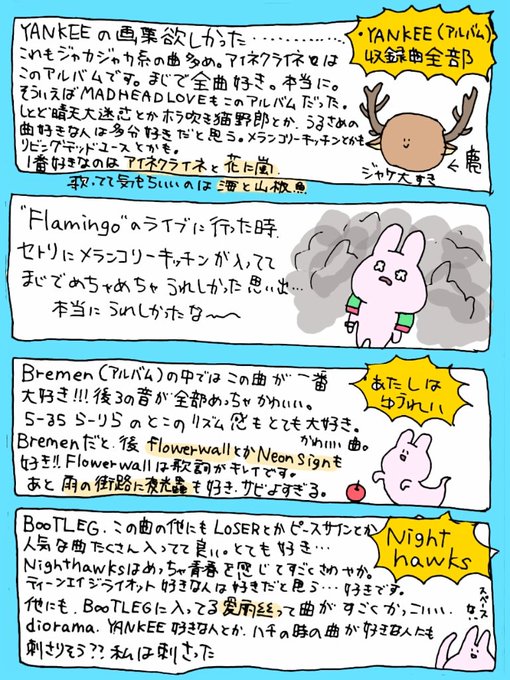 YANKEEの画集欲しかった……………
これもジャカジャカ系の曲多め。アイネクライネは
このアルバムです。まじで全曲好き。本当に。
そういえばMADHEADLOVEもこのアルバムだった。
しとど晴天大迷惑とかホラ吹き猫野郎とか、うるさめの
曲好きな人は多分好きだと思う。メランコリーキッチンとかも
リビングデッドユースとかも。
1番好きなのはアイネクライネと花に嵐.
歌ってて気もちいいのは海と山椒魚
・YANKEE(アルバム)
収録曲全部
←鹿
ジャケ大すき
"Flamingo"のライブに行った時.
セトリにメランコリーキッチンが入ってて
まじでめちゃめちゃうれしかった思い出…
本当にうれしかったな〜〜
Bremen(アルバム)の中ではこの曲が一番
大好き!!!後ろの音が全部めっちゃかわいい。
らーらら らーりらのとこのリズム感もとても大好き。
かわいい曲。
Bremenだと、後flowerwallとかNeon signも
好き!!Flowerwallは歌詞がキレイです。
あと雨の街路に夜光蟲も好き.サビよすぎる。
あたしは
ゆうれい
BOOTLEG.この曲の他にもLOSERとかピースサインとか
人気な曲たくさん入ってて良い。とても好き…
Nighthawksはめっちゃ青春を感じてすごくさわやか。
ティーンエイジライオット好きな人は好きだと思う…好きです。
他にも、BOOTLEGに入ってる愛雨絲って曲がすごくかっこいい.
diorama.YANKEE好きな人とか、ハチの時の曲が好きな人にも
刺さりそう??私は刺さった
Night
hawks
スペース
ない